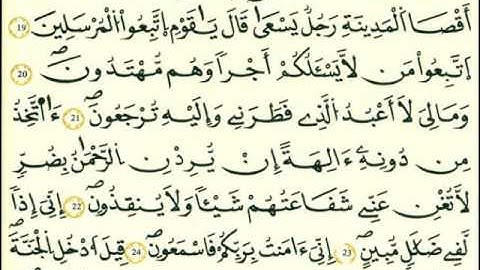 أَقْصَا اَ۬لْمَدِينَةِ رَجُلٞ يَسْعَىٰ قَالَ يَٰقَوْمِ اِ۪تَّبِعُواْ اُ۬لْمُرْسَلِينَ 19
اَ۪تَّبِعُواْ مَن لَّا يَسْـَٔلُكُمُۥٓ أَجْراٗ وَهُم مُّهْتَدُونَۖ 20
وَمَالِيَ لَآ أَعْبُدُ اُ۬لذِے فَطَرَنِے وَإِلَيْهِ تُرْجَعُونَۖ 21 ءَآتَّخِذُ
مِن دُونِهِۦٓ ءَالِهَةً إِنْ يُّرِدْنِ اِ۬لرَّحْمَٰنُ بِضُرّٖ
لَّا تُغْنِ عَنِّے شَفَٰعَتُهُمْ شَيْـٔاٗ وَلَا يُنقِذُونِۖ 22 إِنِّيَ إِذاٗ
لَّفِے ضَلَٰلٖ مُّبِينٍۖ 23 اِنِّيَ ءَامَنتُ بِرَبِّكُمْ فَاسْمَعُونِۖ 24 قِيلَ اَ۟دْخُلِ اِ۬لْجَنَّةَۖ